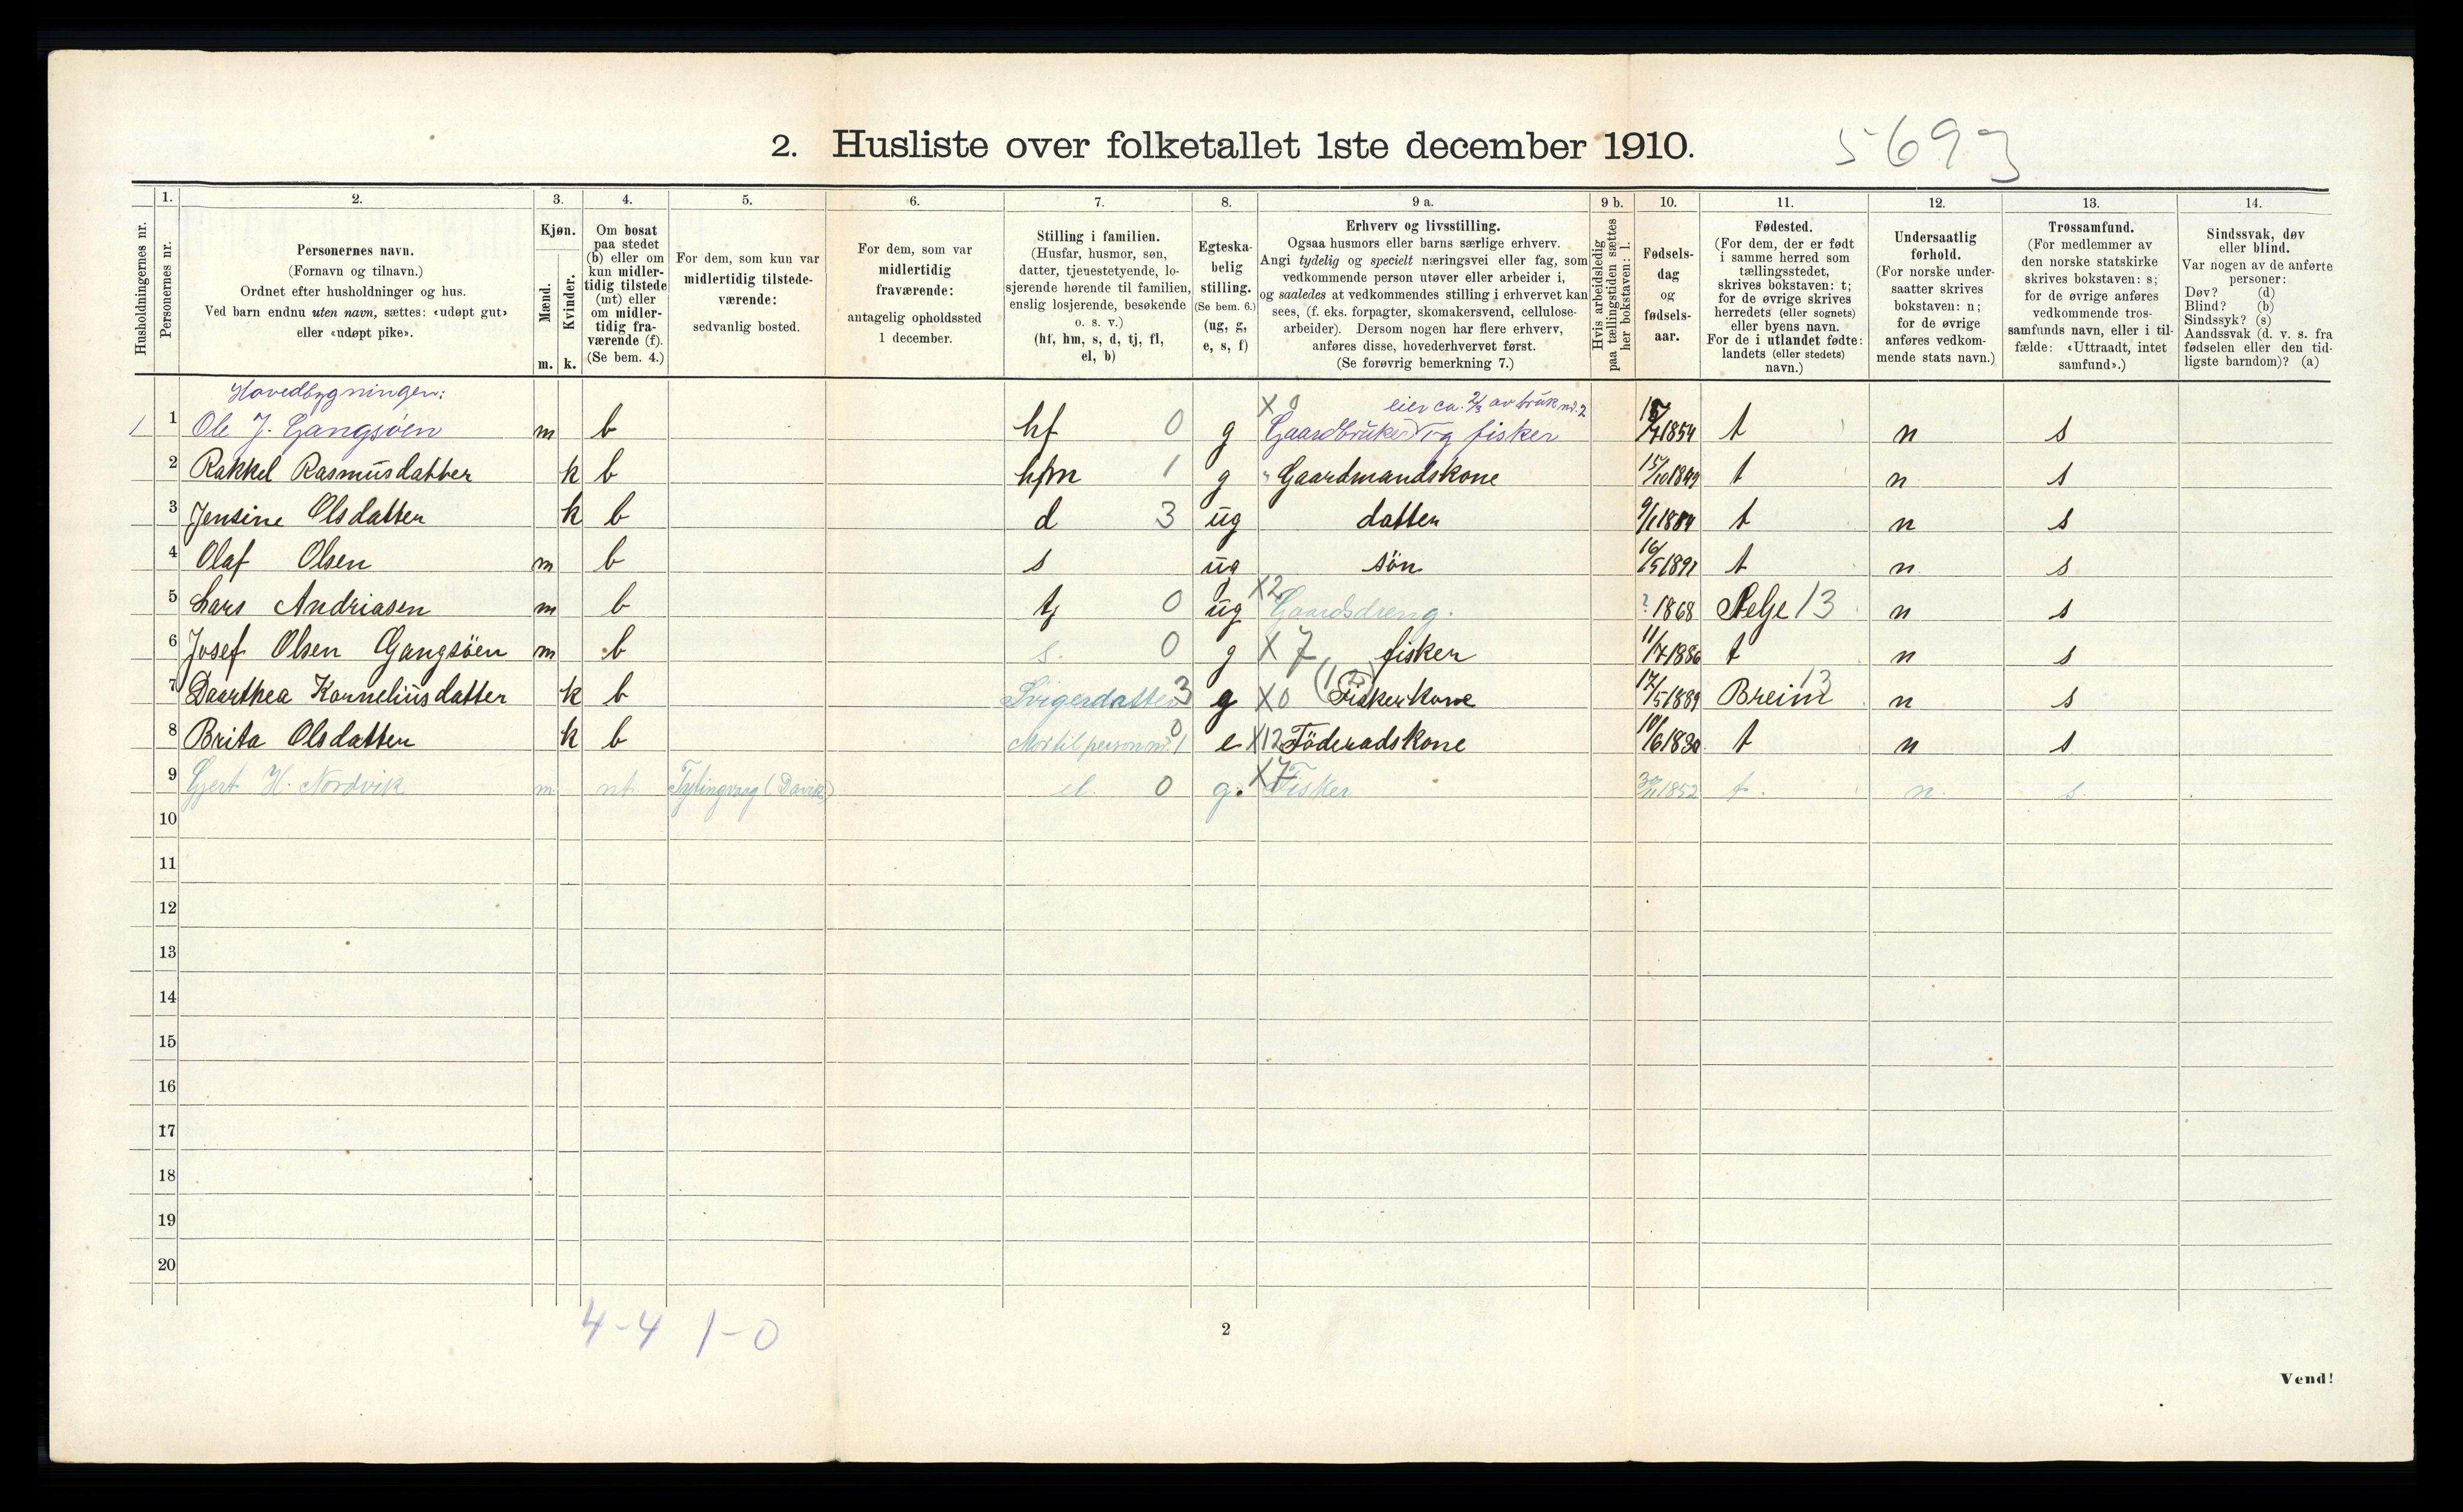 2. Husliste over folketallet 1ste december 1910.
5693
Husholdningernes nr.
1.
Personernes nr.
2.
Personernes navn.
(Fornavn og tilnavn.)
Ordnet efter husholdninger og hus.
Ved barn endnu uten navn, sættes: «udøpt gut»
eller «udøpt pike».
3.
Kjøn.
Mænd.
Kvinder.
m. k.
4.
Om bosat
paa stedet
(b) eller om
kun midler-
tidig tilstede
(mt) eller
om midler-
tidig fra-
værende (f).
(Se bem. 4.)
5.
For dem, som kun var
midlertidig tilstede-
værende:
sedvanlig bosted.
6.
For dem, som var
midlertidig
fraværende:
antagelig opholdssted
1 december.
7.
Stilling i familien.
(Husfar, husmor, søn,
datter, tjenestetyende, lo-
sjerende hørende til familien,
enslig losjerende, besøkende
o. s. v.)
(hf, hm, s, d, tj, fl,
el, b)
8.
Egteska-
belig
stilling.
(Se bem. 6.)
(ug, g,
e, s, f)
9 a.
Erhverv og livsstilling.
Ogsaa husmors eller barns særlige erhverv.
Angi tydelig og specielt næringsvei eller fag, som
vedkommende person utøver eller arbeider i,
og saaledes at vedkommendes stilling i erhvervet kan
sees, (f. eks. forpagter, skomakersvend, cellulose-
arbeider). Dersom nogen har flere erhverv,
anføres disse, hovederhvervet først.
(Se forøvrig bemerkning 7.)
9 b.
Hvis arbeidsledig
paa tællingstiden sættes
her bokstaven: l.
10.
Fødsels-
dag
og
fødsels-
aar.
11.
Fødested.
(For dem, der er født
i samme herred som
tællingsstedet,
skrives bokstaven: t;
for de øvrige skrives
herredets (eller sognets)
eller byens navn.
For de i utlandet fødte:
landets (eller stedets)
navn.)
12.
Undersaatlig
forhold.
(For norske under-
saatter skrives
bokstaven: n;
for de øvrige
anføres vedkom-
mende stats navn.)
13.
Trossamfund.
(For medlemmer av
den norske statskirke
skrives bokstaven: s;
for de øvrige anføres
vedkommende tros-
samfunds navn, eller i til-
fælde: «Uttraadt, intet
samfund».)
14.
Sindssvak, døv
eller blind.
Var nogen av de anførte
personer:
Døv? (d)
Blind? (b)
Sindssyk? (s)
Aandssvak (d. v. s. fra
fødselen eller den tid-
ligste barndom)? (a)
Hovedbygningen:
eier ca. 2/3 av bruk nr. 2
1 1 Ole J. Gangsöen m b hf 0 g X 0 Gaardbruker og fisker /7 1854 t n s
2 Rakkel Rasmusdatter k b hm 1 g Gaardmandskone 15/10 1849 t n s
3 Jensine Olsdatter k b d 3 ug datter 9/1 1884 t n s
4 Olaf Olsen m b s ug sön 16/5 1891 t n s
5 Lars Andriasen m b tj 0 ug X2 Gaardsdreng. ? 1868 Selje 13 n s
6 Josef Olsen Gangsöen m b s. 0 g X 7 fisker 11/7 1886 t n s
7 Daarthea Korneliusdatter k b Svigerdatter 3 g X0 Fiskerkone 17/5 1889 Breim 13 n s
8 Brita Olsdatter k b Mor til person nr. 1 0 e X12 Föderadskone 10/6 1830 t n s
9 Gjert H. Nordvik m mt Tytingvaag (Davik) el. 0 g. X7 Fisker 30/11 1852 t. n. s.
10
11
12
13
14
15
16
17
18
19
20
4-4 1-0
2
Vend!